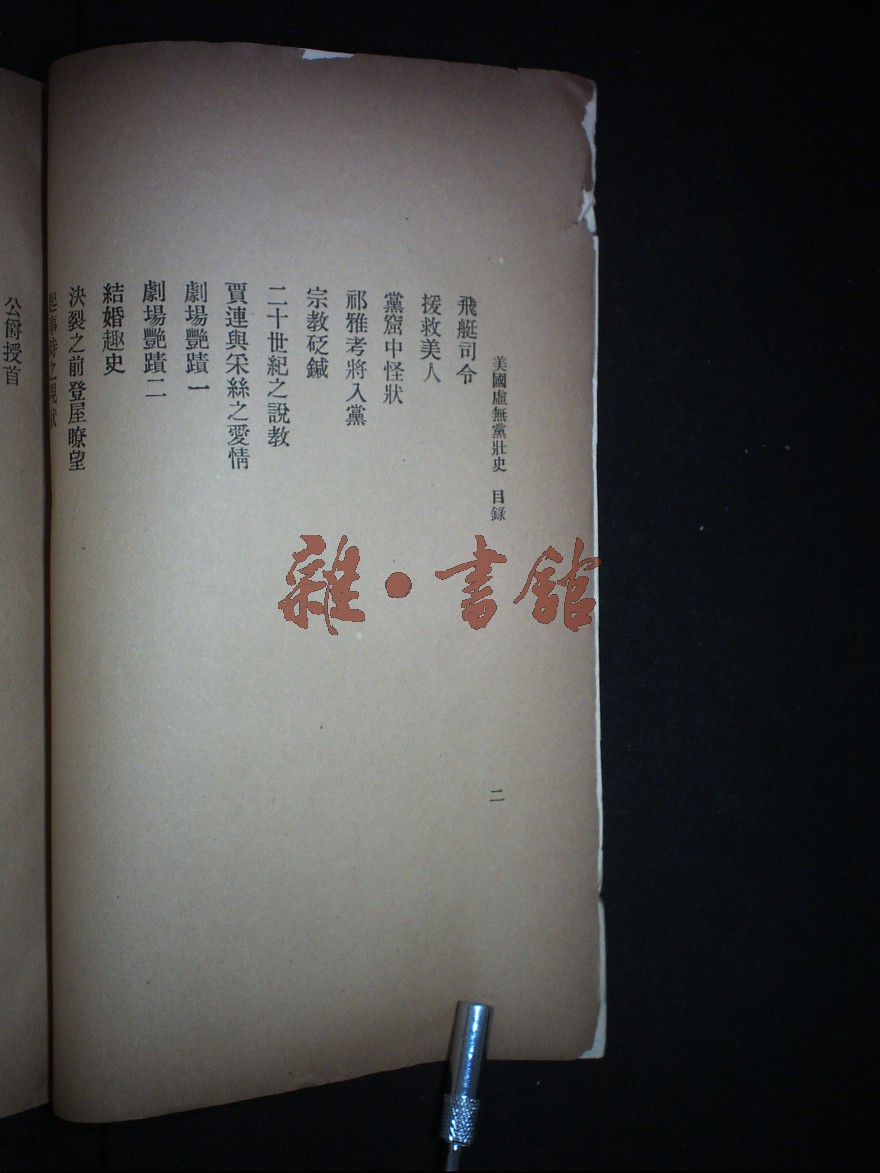 美國虛無黨壯史 目錄
二
飛艇司令
援救美人
黨窟中怪狀
祁雅考將入黨
宗教砭鍼
二十世紀之說教
賈連與采絲之愛情
劇場艷蹟一
劇場艷蹟二
結婚趣史
決裂之前登屋瞭望
起事時之現狀
公爵授首
雜·書館